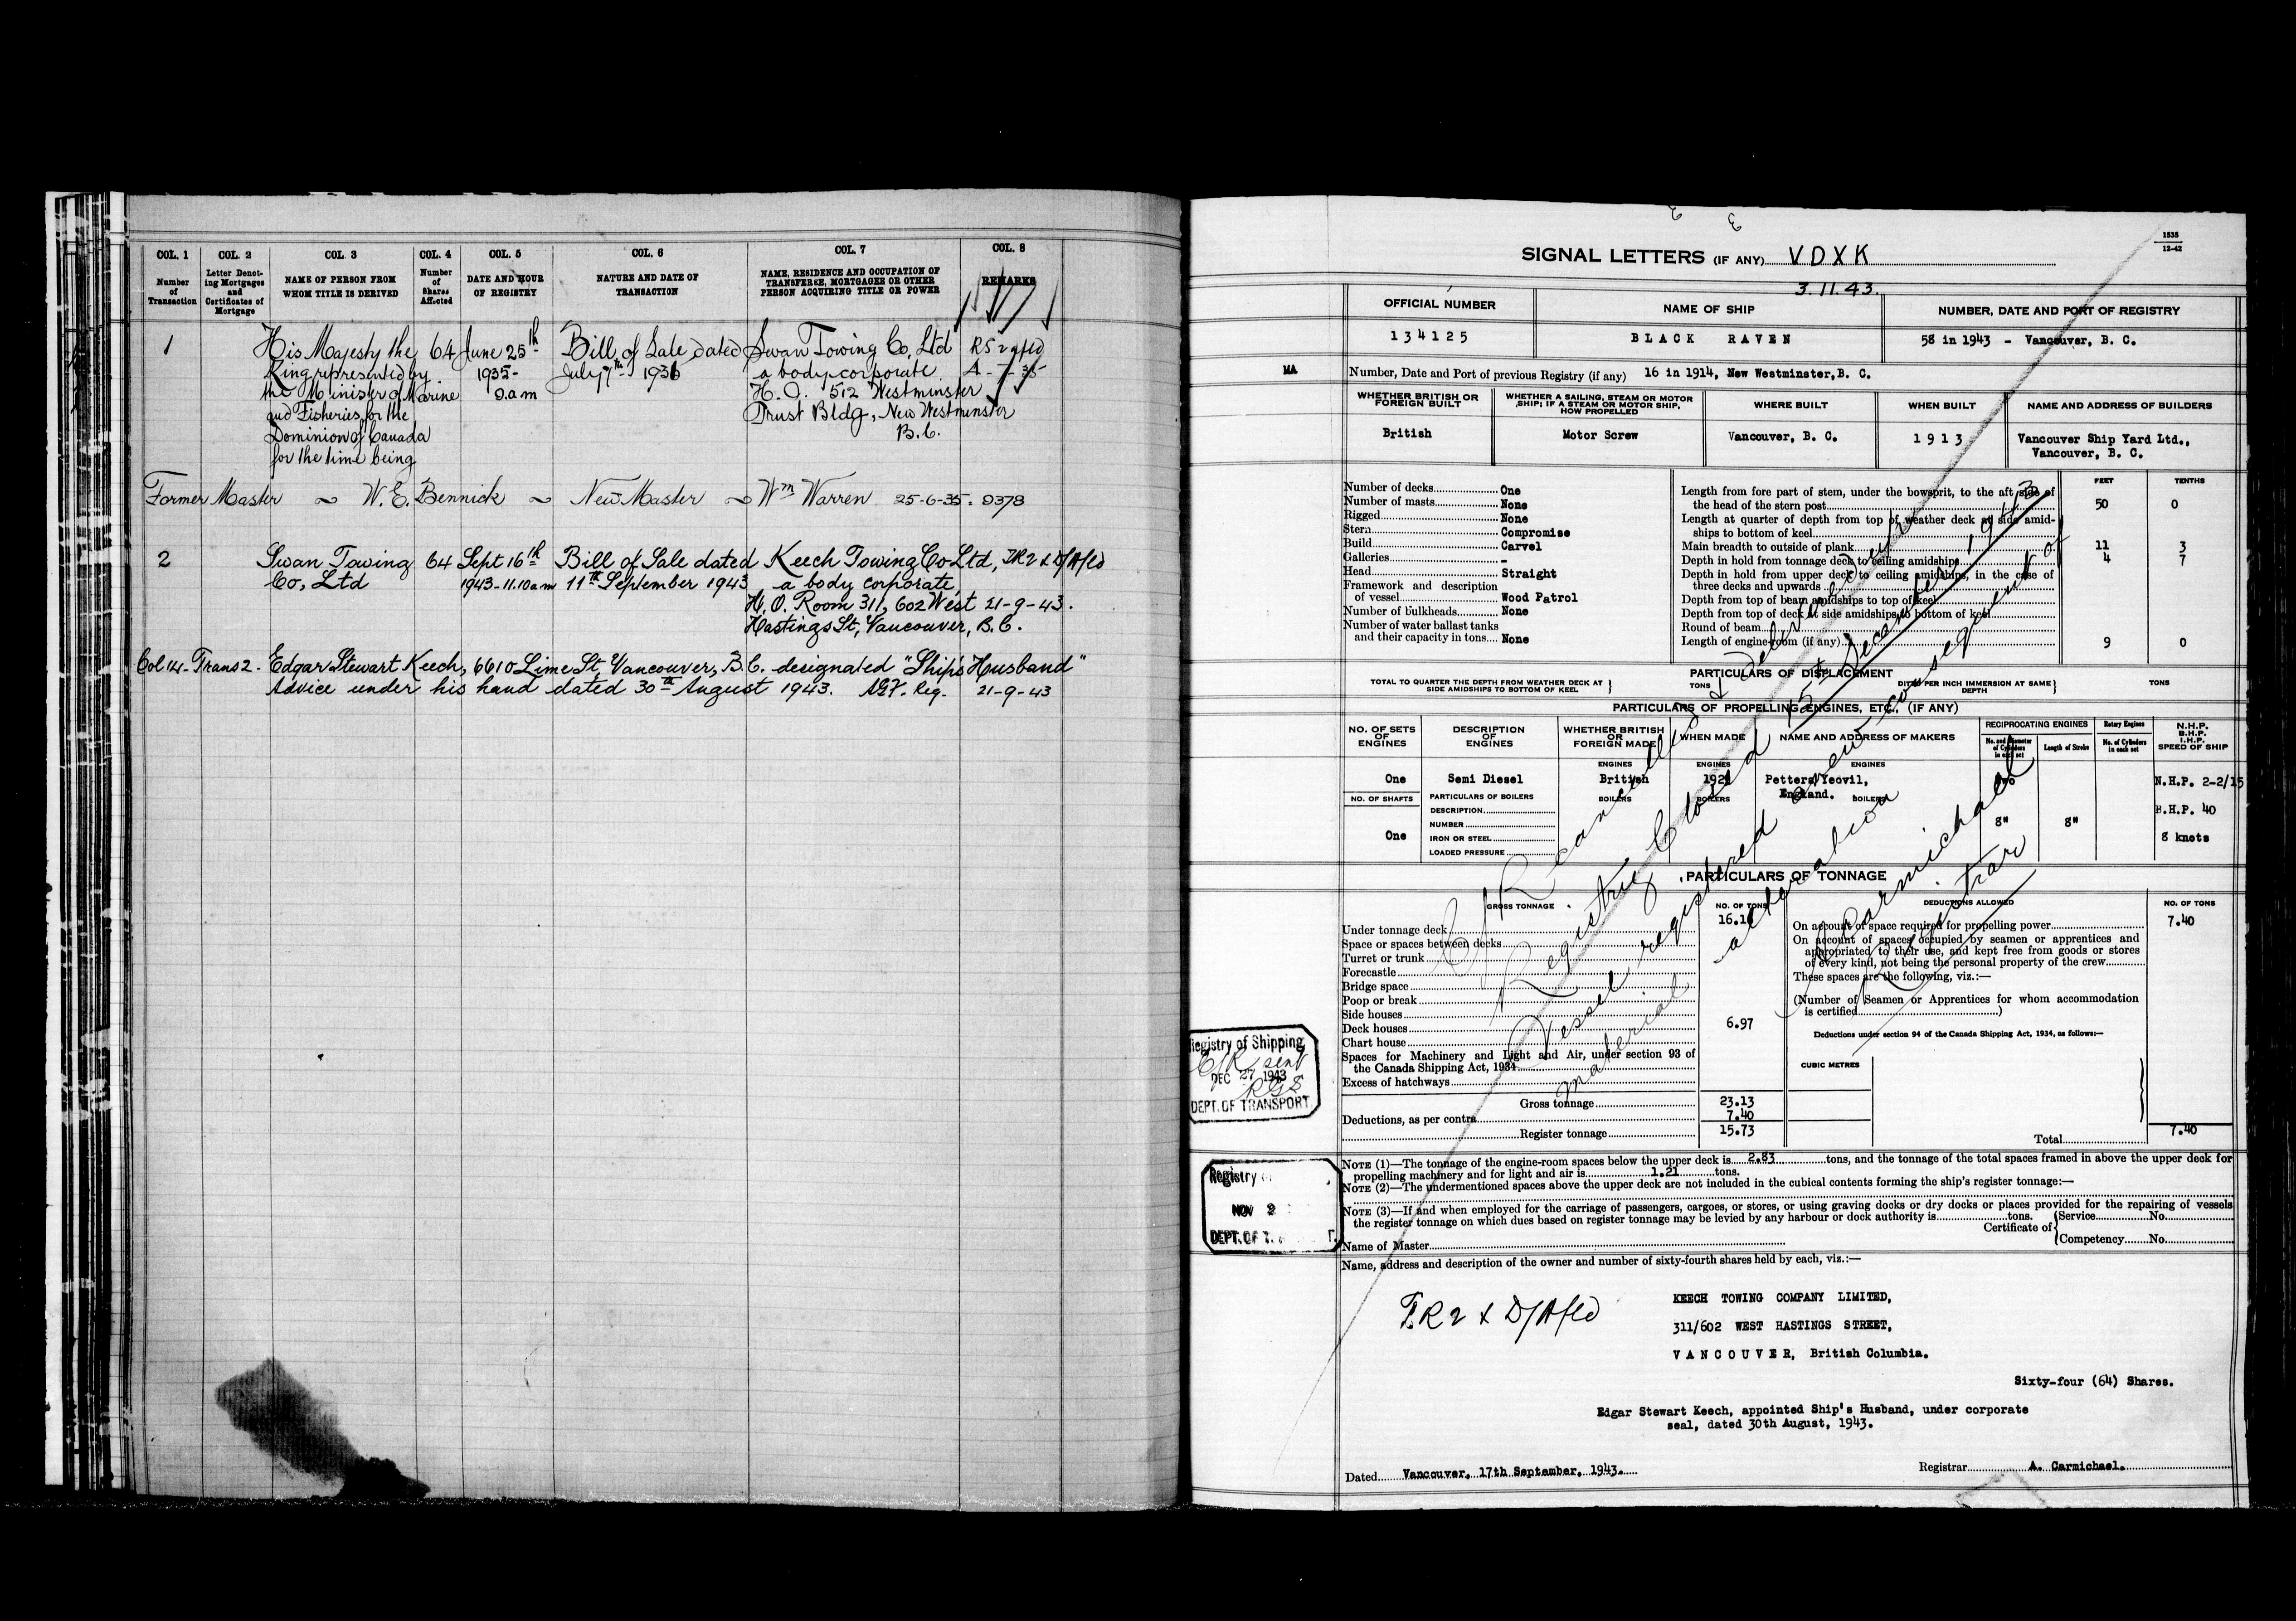 COL. 1 COL. 2 COL. 3 COL. 4 COL. 5 COL. 6 COL. 7 COL. 8
Number of Transaction
Letter Denoting Mortgages and Certificates of Mortgage
NAME OF PERSON FROM WHOM TITLE IS DERIVED
Number of Shares Affected
DATE AND HOUR OF REGISTRY
NATURE AND DATE OF TRANSACTION
NAME, RESIDENCE AND OCCUPATION OF TRANSFEREE, MORTGAGEE OR OTHER PERSON ACQUIRING TITLE OR POWER
REMARKS
1 His Majesty the 64 June 25th Bill of Sale dated Swan Towing Co, Ltd
King represented by 1935- July 7th 1936 a body corporate
the Minister of Marine 9.a m H.O. 512 Westminster
and Fisheries for the Trust Bldg, New Westminster
Dominion of Canada B.C.
for the time being
Former Master ~ W. E. Bennick ~ New Master ~ Wm Warren 25-6-35. 9378
2 Swan Towing 64 Sept 16th Bill of Sale dated Keech Towing Co Ltd, TR2 & D/A fld
Co, Ltd 1943-11.10am 11th September 1943 a body corporate,
H.O. Room 311, 602 West 21-9-43.
Hastings St, Vancouver, B.C.
Col 14- Trans 2. Edgar Stewart Keech, 6610 Lime St, Vancouver, B.C. designated "Ship's Husband"
Advice under his hand dated 30th August 1943. Reg. 21-9-43
1535
12-42
SIGNAL LETTERS (IF ANY) VDXK
3.11.43.
OFFICIAL NUMBER NAME OF SHIP NUMBER, DATE AND PORT OF REGISTRY
134125 BLACK RAVEN 58 in 1943 - Vancouver, B. C.
MA Number, Date and Port of previous Registry (if any) 16 in 1914, New Westminster, B. C.
WHETHER BRITISH OR FOREIGN BUILT
WHETHER A SAILING, STEAM OR MOTOR SHIP; IF A STEAM OR MOTOR SHIP, HOW PROPELLED
WHERE BUILT WHEN BUILT NAME AND ADDRESS OF BUILDERS
British Motor Screw Vancouver, B. C. 1913 Vancouver Ship Yard Ltd.,
Vancouver, B. C.
Number of decks One
Number of masts None
Rigged None
Stern Compromise
Build Carvel
Galleries -
Head Straight
Framework and description
of vessel Wood Patrol
Number of bulkheads None
Number of water ballast tanks
and their capacity in tons None
FEET TENTHS
Length from fore part of stem, under the bowsprit, to the aft side of
the head of the stern post 50 0
Length at quarter of depth from top of weather deck at side amid-
ships to bottom of keel
Main breadth to outside of plank 11 3
Depth in hold from tonnage deck to ceiling amidships 4 7
Depth in hold from upper deck to ceiling amidships, in the case of
three decks and upwards
Depth from top of beam amidships to top of keel
Depth from top of deck at side amidships to bottom of keel
Round of beam
Length of engine-room (if any) 9 0
PARTICULARS OF DISPLACEMENT
TOTAL TO QUARTER THE DEPTH FROM WEATHER DECK AT SIDE AMIDSHIPS TO BOTTOM OF KEEL TONS
DITTO PER INCH IMMERSION AT SAME DEPTH TONS
PARTICULARS OF PROPELLING ENGINES, ETC. (IF ANY)
NO. OF SETS OF ENGINES
DESCRIPTION OF ENGINES
WHETHER BRITISH OR FOREIGN MADE
WHEN MADE
NAME AND ADDRESS OF MAKERS
RECIPROCATING ENGINES
No. and Diameter of Cylinders in each set
Length of Stroke
Rotary Engines
No. of Cylinders in each set
N.H.P.
B.H.P.
I.H.P.
SPEED OF SHIP
ENGINES ENGINES ENGINES
One Semi Diesel British Petters, Yeovil, N.H.P. 2-2/15
England.
NO. OF SHAFTS PARTICULARS OF BOILERS BOILERS BOILERS BOILERS
DESCRIPTION B.H.P. 40
NUMBER 8" 8"
One IRON OR STEEL 8 knots
LOADED PRESSURE
PARTICULARS OF TONNAGE
GROSS TONNAGE NO. OF TONS DEDUCTIONS ALLOWED NO. OF TONS
Under tonnage deck 16.16
Space or spaces between decks
Turret or trunk
Forecastle
Bridge space
Poop or break
Side houses
Deck houses 6.97
Chart house
Spaces for Machinery and Light and Air, under section 93 of
the Canada Shipping Act, 1934
Excess of hatchways
Gross tonnage 23.13
Deductions, as per contra 7.40
Register tonnage 15.73
On account of space required for propelling power 7.40
On account of spaces occupied by seamen or apprentices and
appropriated to their use, and kept free from goods or stores
of every kind, not being the personal property of the crew
These spaces are the following, viz.:—
(Number of Seamen or Apprentices for whom accommodation
is certified )
Deductions under section 94 of the Canada Shipping Act, 1934, as follows:—
CUBIC METRES
Total 7.40
C/R cancelled & delivered up
Registry Closed 15th December, 1943
Vessel registered anew consequent of
material alteration
A Carmichael
Registrar
Registry of Shipping
C/R sent
DEC 27 1943
RGS
DEPT. OF TRANSPORT.
Registry
NOV 2
DEPT. OF T.
NOTE (1)—The tonnage of the engine-room spaces below the upper deck is 2.83 tons, and the tonnage of the total spaces framed in above the upper deck for
propelling machinery and for light and air is 1.21 tons.
NOTE (2)—The undermentioned spaces above the upper deck are not included in the cubical contents forming the ship's register tonnage:—
NOTE (3)—If and when employed for the carriage of passengers, cargoes, or stores, or using graving docks or dry docks or places provided for the repairing of vessels
the register tonnage on which dues based on register tonnage may be levied by any harbour or dock authority is tons.
Certificate of Service No.
Competency No.
Name of Master
Name, address and description of the owner and number of sixty-fourth shares held by each, viz.:—
T.R 2 & D/A fld
KEECH TOWING COMPANY LIMITED,
311/602 WEST HASTINGS STREET,
VANCOUVER, British Columbia.
Sixty-four (64) Shares.
Edgar Stewart Keech, appointed Ship's Husband, under corporate
seal, dated 30th August, 1943.
Dated Vancouver, 17th September, 1943.
Registrar A. Carmichael.